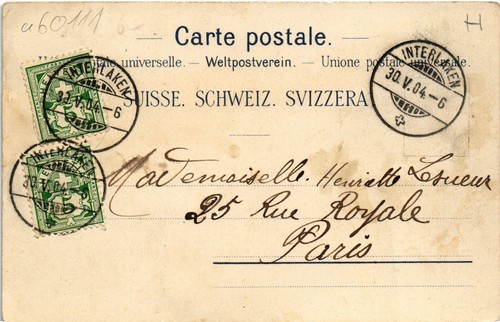 a60111
H
Carte postale.
universelle. – Weltpostverein. – Unione postale universale.
SUISSE. SCHWEIZ. SVIZZERA
INTERLAKEN
30.V.04.-6
INTERLAKEN
30.V.04.-6
INTERLAKEN
30.V.04
Mademoiselle Henriette Lesueur
25 Rue Royale
Paris